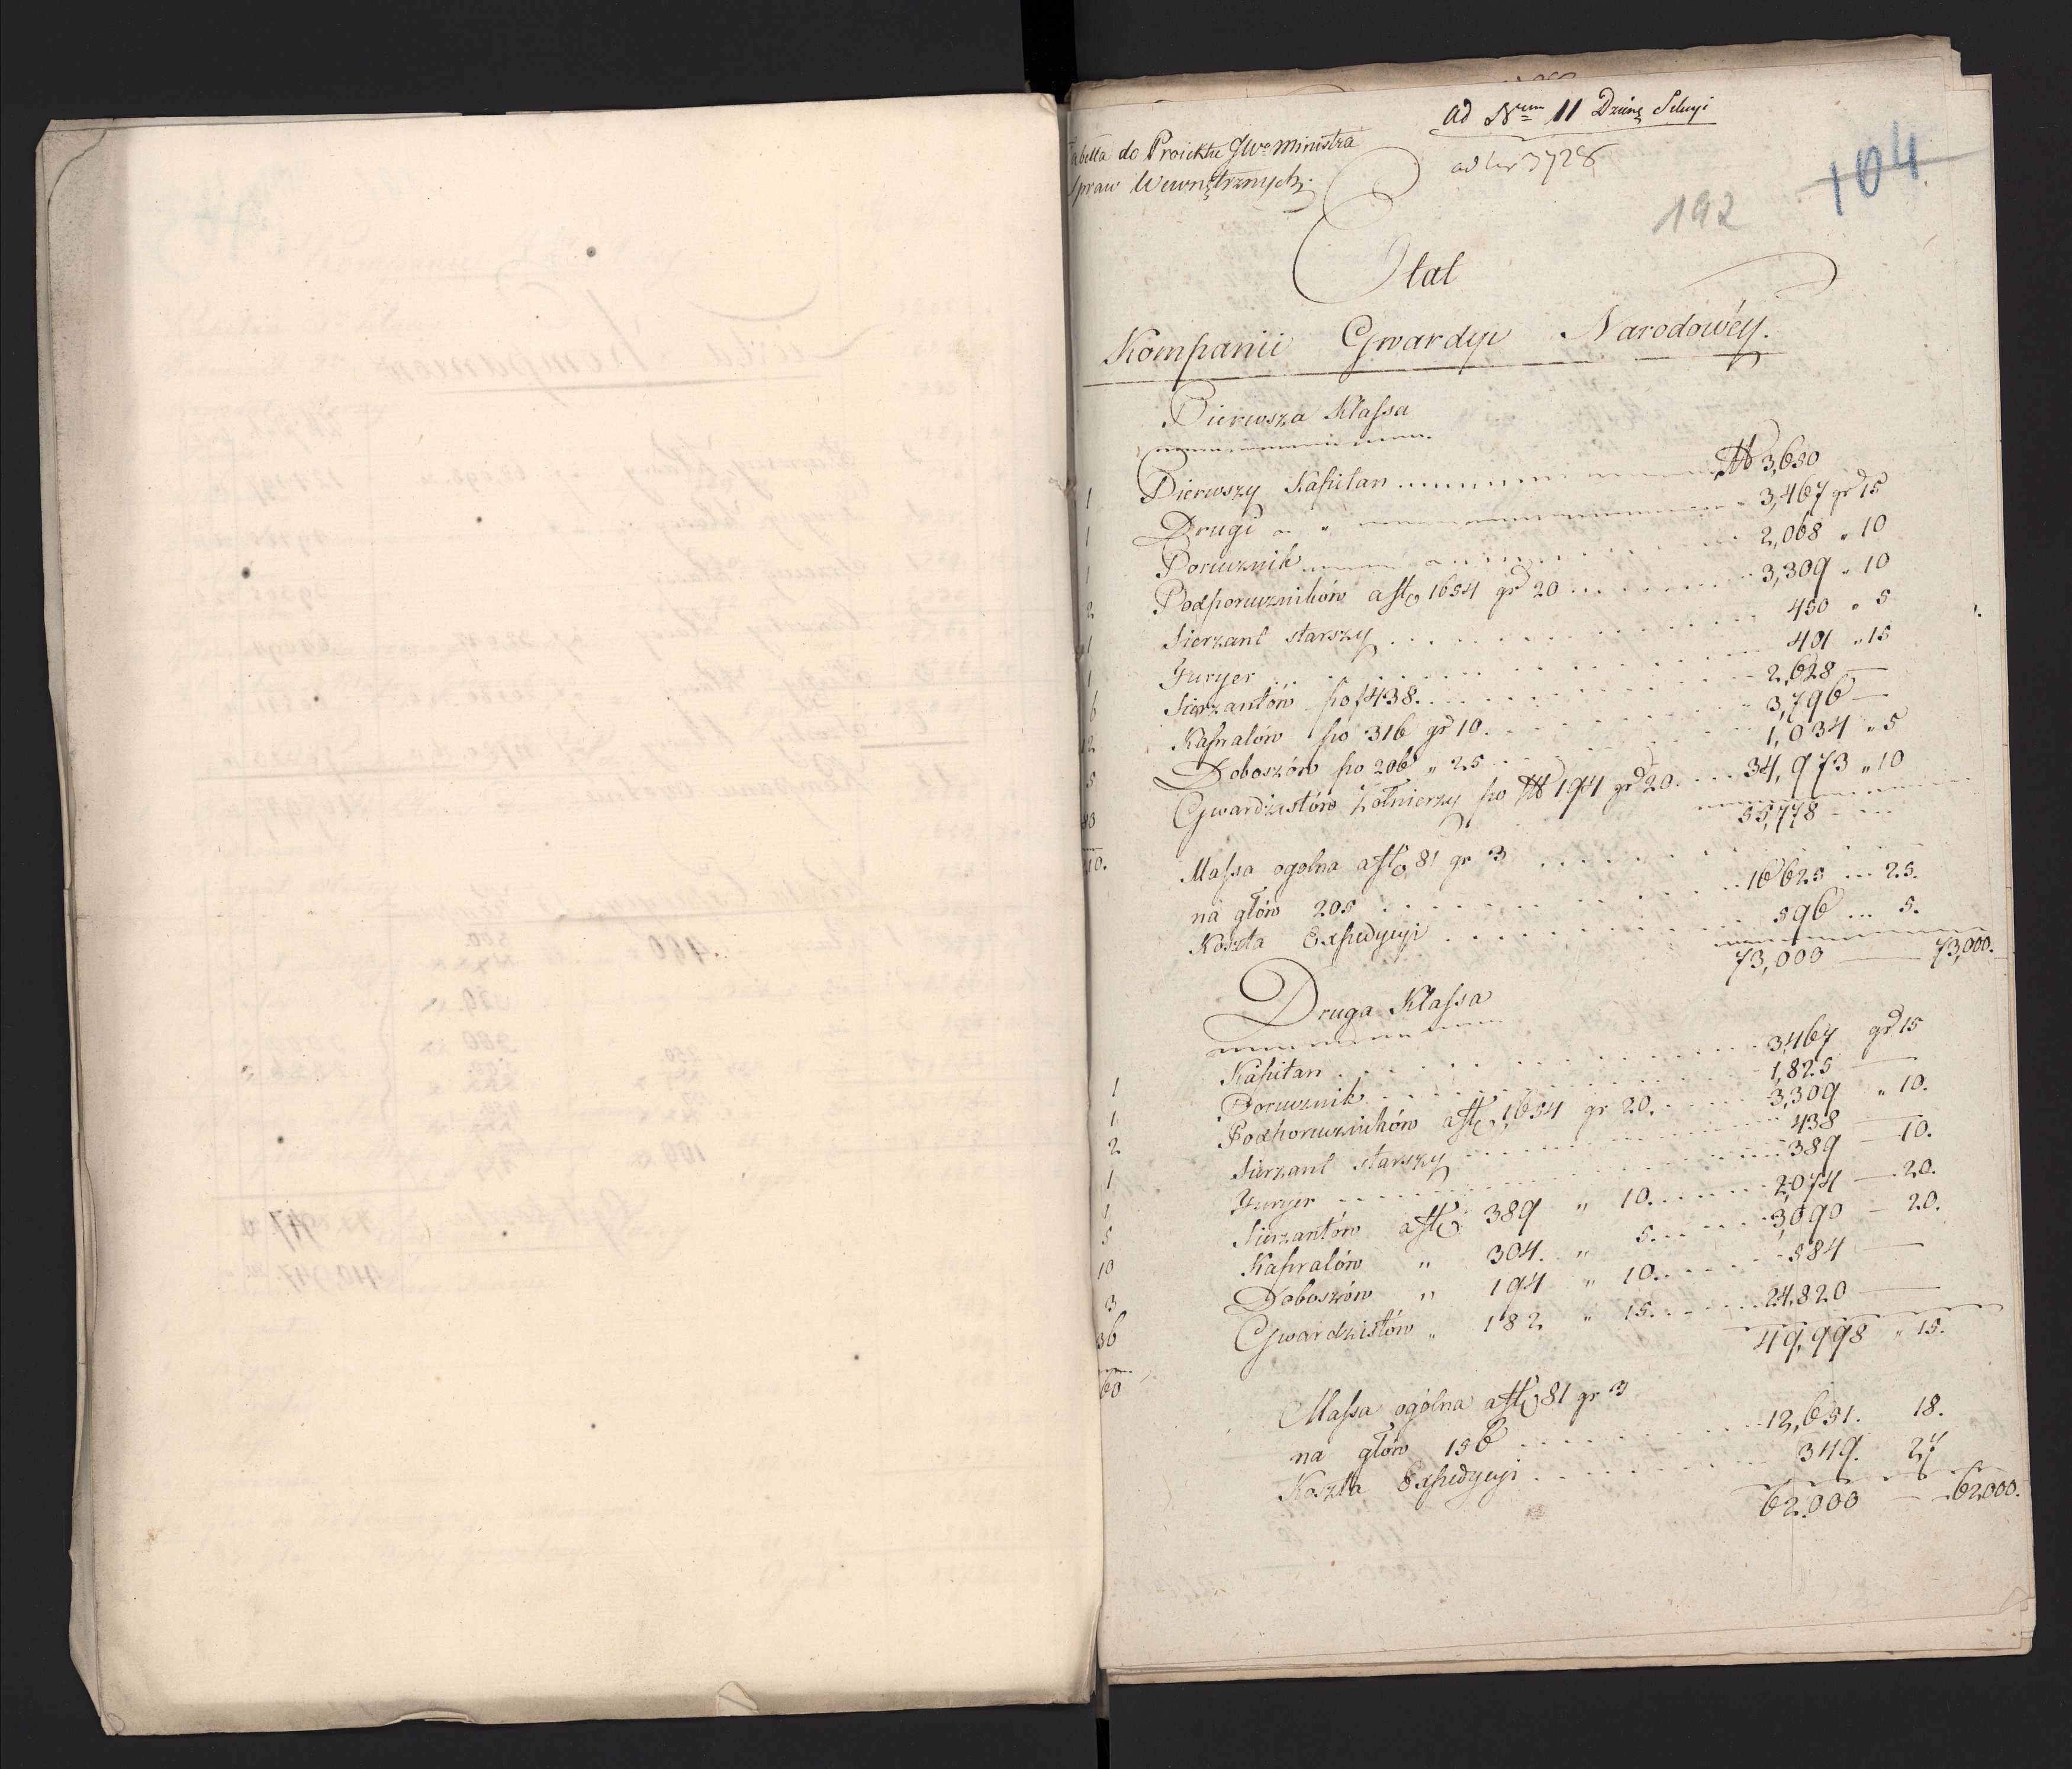 ad Num 11 Dzien: Sekcyi
abella do Proiektu JWo Ministra
Spraw Wewnętrznych.
192
104
Etat
Kompanii Gwardyi Narodowéy.
Pierwsza Klassa
1 Pierwszy Kapitan 3,650
1 Drugi " " 3,467 gr 15
1 Porucznik 2,068 " 10
2 Podporuczników a 1654 gr 20 3,309 " 10
1 Sierzant starszy 450 " 5
1 Furyer 401 " 15
6 Sierzantów po f 438. 2,628 —
12 Kapralów po 316 gr 10. 3,796 —
5 Doboszów po 206 " 25 1,034 " 5
80 Gwardzistów Żołnierzy po 194 gr 20. 34,973 " 10
55,778
210. Massa ogolna a 81 gr 3
na głów 205 16625 ... 25.
Koszta Expedycyi 596 ... 5.
73,000 — 73,000.
Druga Klassa
1 Kapitan 3,467 gr 15
1. Porucznik 1,825 —
2 Podporuczników a 1,654 gr 20. 3,309 " 10.
1 Sierzant starszy 438 —
1. Furyer 389 — 10.
5 Sierzantów a 389 " 10. 2,074 — 20.
10 Kapralów " 304. " 5. 3,090 — 20.
3 Doboszów " 194 " 10. 584 —
36 Gwardzistów " 182 " 15. 24,820 —
49,998 " 15.
60
Massa ogólna a 81 gr 3
na głów 156 12,651. 18.
Koszta Expedycyi 349. 27
62.000 — 62000.